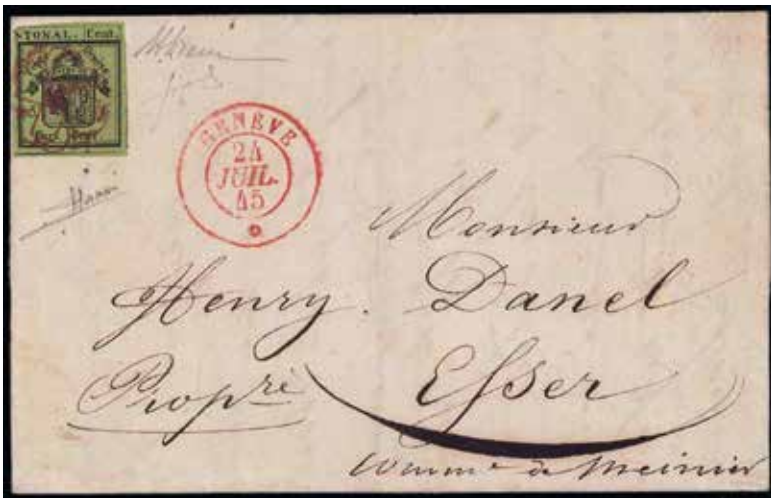 STONAL. Cent.
GENÈVE
24
JUIL.
45
Monsieur
Henry. Danel
Propre Esser
de Meinier